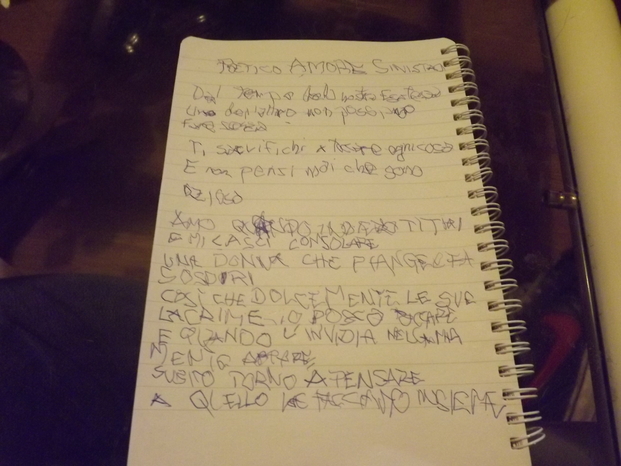 POETICO AMORE SINISTRO
Dal tempo della nostra Esistenza
Uno dell'altro non possiamo
fare senza
Ti sacrifichi a fare ogni cosa
E non pensi mai che sono
AMO QUANDO INDIFESA TI TROVI
E MI LASCI CONSOLARE
UNA DONNA CHE PIANGE E FA
SOSPIRI
COSI CHE DOLCEMENTE LE SUE
LACRIME IO POSSO
E QUANDO L'INVIDIA NELLA MIA
MENTE APPARE
SUBITO TORNO A PENSARE
A QUELLO FACCIAMO INSIEME